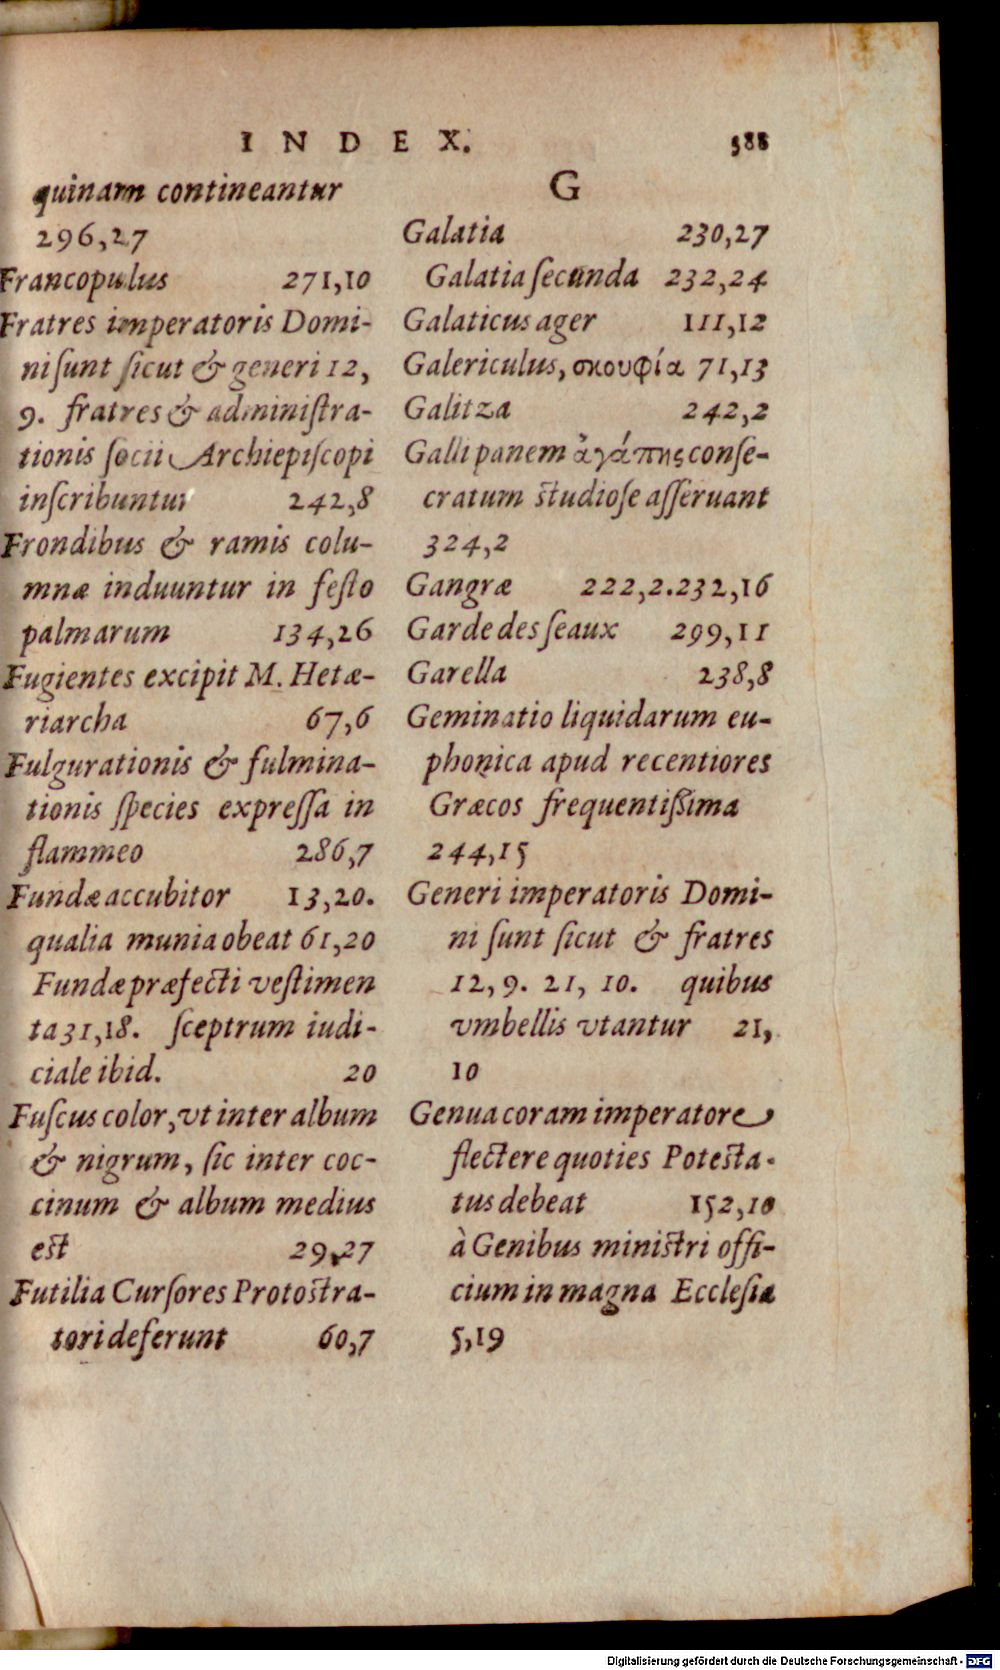 INDEX. 588
quinam contineantur
296,27
Francopulus 271,10
Fratres imperatoris Domi-
ni sunt sicut & generi 12,
9. fratres & administra-
tionis socii Archiepiscopi
inscribuntur 242,8
Frondibus & ramis colu-
mnæ induuntur in festo
palmarum 134,26
Fugientes excipit M. Hetæ-
riarcha 67,6
Fulgurationis & fulmina-
tionis species expressa in
flammeo 286,7
Fundæ accubitor 13,20.
qualia munia obeat 61,20
Fundæ præfecti vestimen
ta 31,18. sceptrum iudi-
ciale ibid. 20
Fuscus color, vt inter album
& nigrum, sic inter coc-
cinum & album medius
est 29,27
Futilia Cursores Protostra-
tori deferunt 60,7
G
Galatia 230,27
Galatia secunda 232,24
Galaticus ager 111,12
Galericulus, σκουφία 71,13
Galitza 242,2
Galli panem ἀγάπης conse-
cratum studiose asseruant
324,2
Gangræ 222,2.232,16
Garde des seaux 299,11
Garella 238,8
Geminatio liquidarum eu-
phonica apud recentiores
Græcos frequentissima
244,15
Generi imperatoris Domi-
ni sunt sicut & fratres
12, 9. 21, 10. quibus
vmbellis vtantur 21,
10
Genua coram imperatore
flectere quoties Potesta-
tus debeat 152,10
à Genibus ministri offi-
cium in magna Ecclesia
5,19
Digitalisierung gefördert durch die Deutsche Forschungsgemeinschaft - DFG